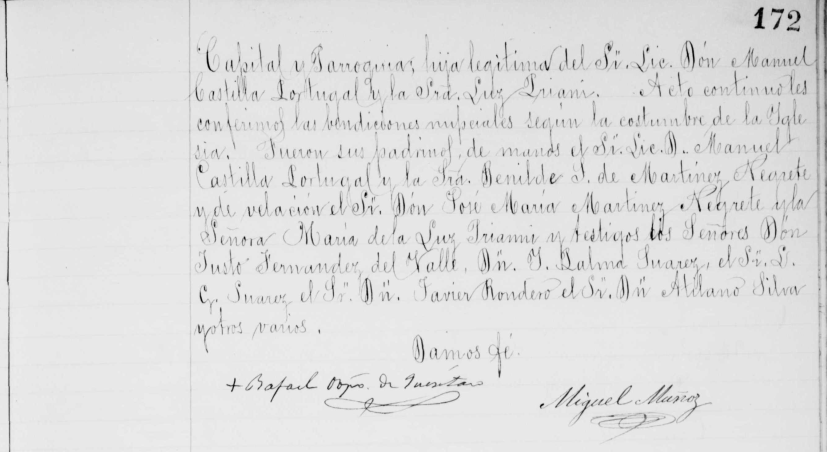 172
Capital y Parroquia, hija legitima del Sr. Lic. Dón Manuel
Castilla Portugal y la Sra. Luz Trianni. Acto continuo les
conferimos las bendiciones nupciales según la costumbre de la Ygle
sia. Fueron sus padrinos, de manos el Sr. Lic. D. Manuel
Castilla Portugal y la Sra. Denilde S. de Martínez Negrete
y de velación el Sr. Dón José María Martinez Negrete y la
Señora María de la Luz Trianni y testigos los Señores Dón
Justo Fernandez del Valle, Dn. J. Palma Suarez, el Sr. L.
G. Suarez el Sr. Dn. Javier Rondero el Sr. Dn Atilano Silva
y otros varios.
Damos fé.
+ Rafael Obpo. de Querétaro
Miguel Muñoz